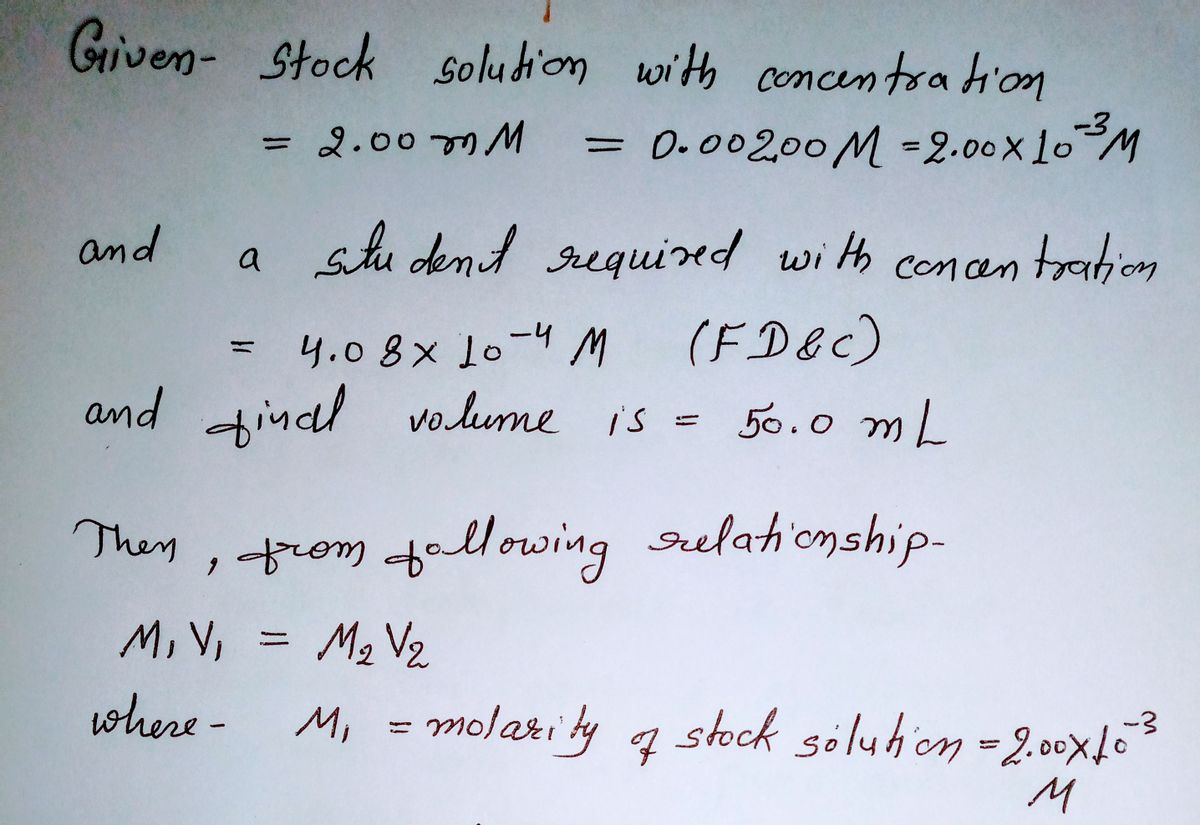 Given- Stock solution with concentration
= 2.00 mM = 0.00200 M = 2.00 × 10⁻³ M
and a student required with concentration
= 4.08 × 10⁻⁴ M (FD&C)
and final volume is = 50.0 mL
Then, from following relationship-
M₁V₁ = M₂V₂
where- M₁ = molarity of stock solution = 2.00×10⁻³
M